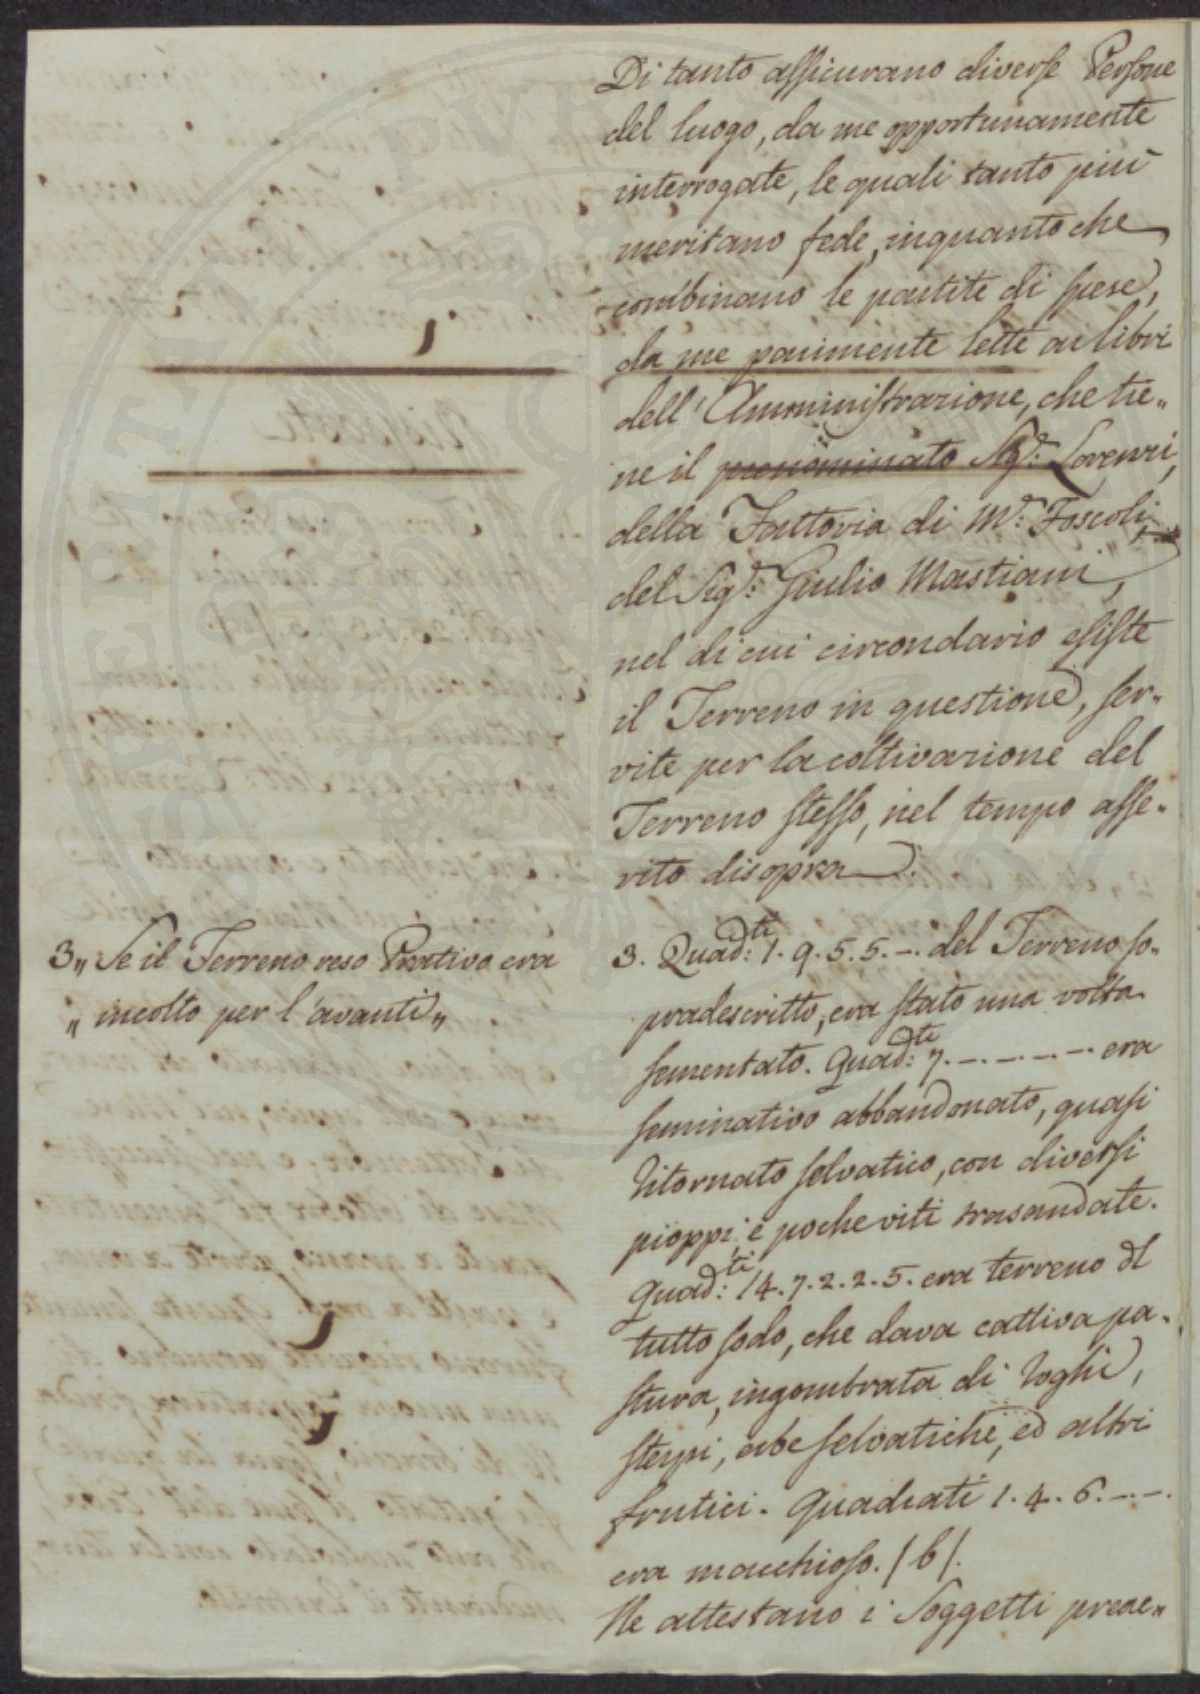 Di tanto assicurano diverse Persone
del luogo, da me opportunamente
interrogate, le quali tanto più
meritano fede, inquanto che
combinano le partite di spese,
da me parimente lette ai libri
dell'Amministrazione, che tie„
ne il prenominato Sig.r Lorenzi,
della Fattoria di M.r Foscoli,
del Sig.r Giulio Mastiani,
nel di cui circondario esiste
il Terreno in questione, ser„
vite per la coltivazione del
Terreno stesso, nel tempo asse„
rito disopra.
3„ Se il Terreno reso Prativo era
„ incolto per l'avanti„
3. Quad:ti 1. 9. 5. 5. –. del Terreno so„
pradescritto, era stato una volta
sementato. Quad:ti 7. –. –. –. –. era
seminativo abbandonato, quasi
ritornato selvatico, con diversi
pioppi, e poche viti trasandate.
Quad:ti 14. 7. 2. 2. 5. era terreno del
tutto sodo, che dava cattiva pa„
stura, ingombrata di roghi,
sterpi, erbe selvatiche, ed altri
frutici. Quadrati 1. 4. 6. –. –.
era macchioso. /b/.
Ne attestano i Soggetti prece„